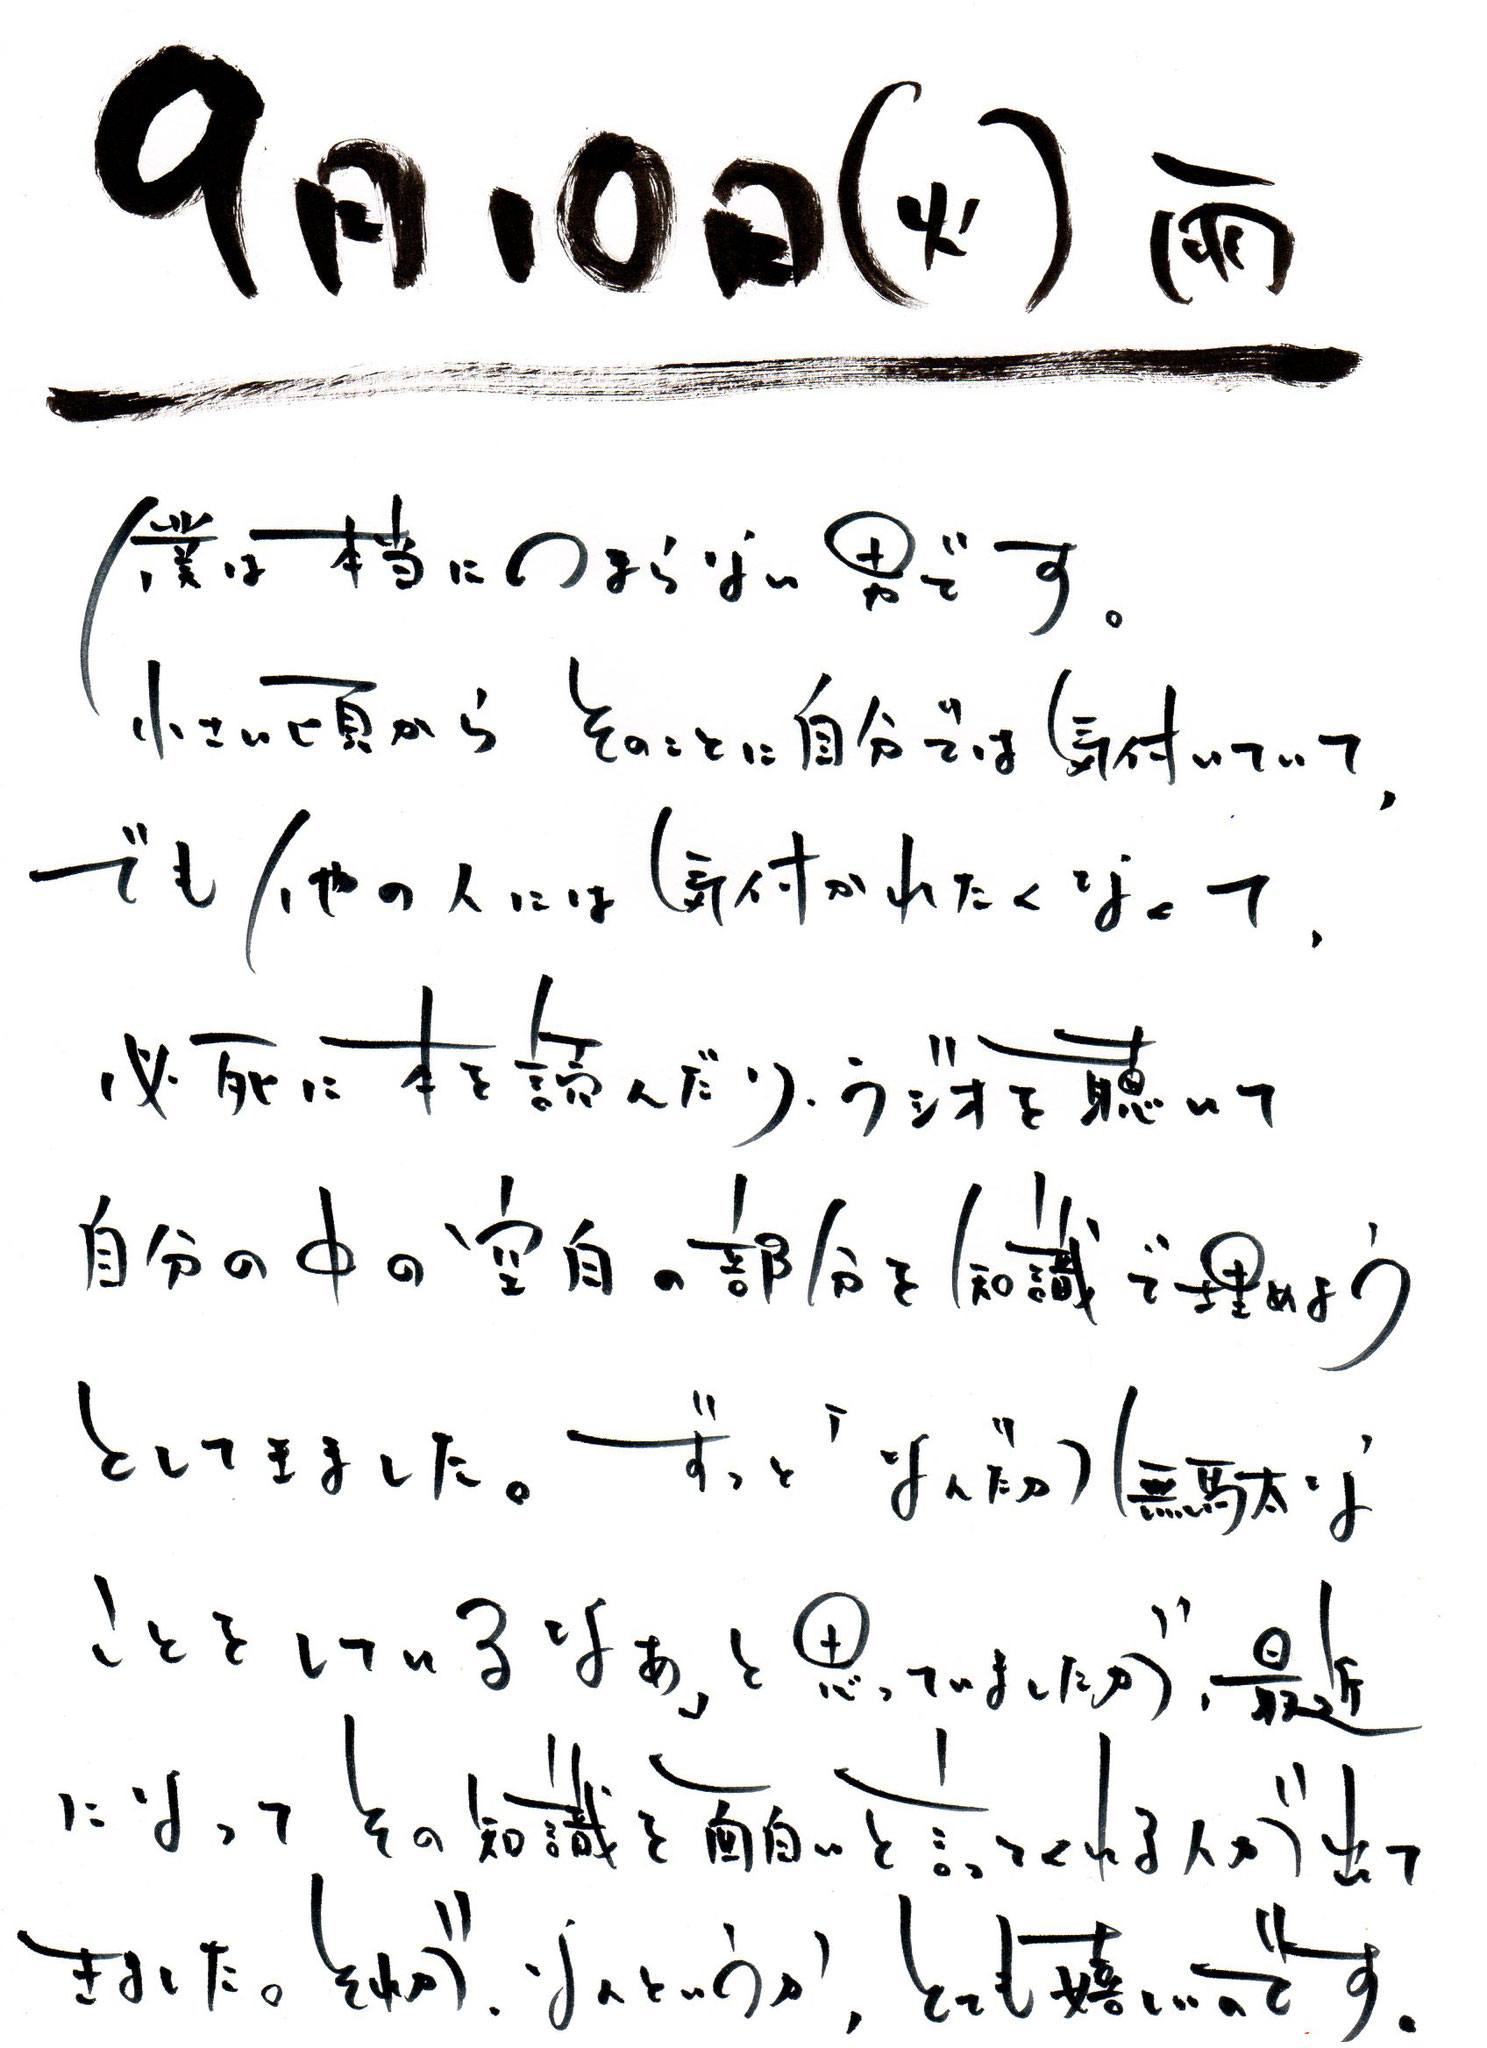 9月10日(火) 雨
僕は本当につまらない男です。
小さい頃からそのことに自分では気付いていて、
でも他の人には気付かれたくなくて、
必死に本を読んだり、ラジオを聴いて
自分の中の空白の部分を知識で埋めよう
としてきました。ずっと「なんだか無駄な
ことをしているなぁ」と思っていましたが、最近
になってその知識を面白いと言ってくれる人が出て
きました。それが、なんというか、とても嬉しいのです。